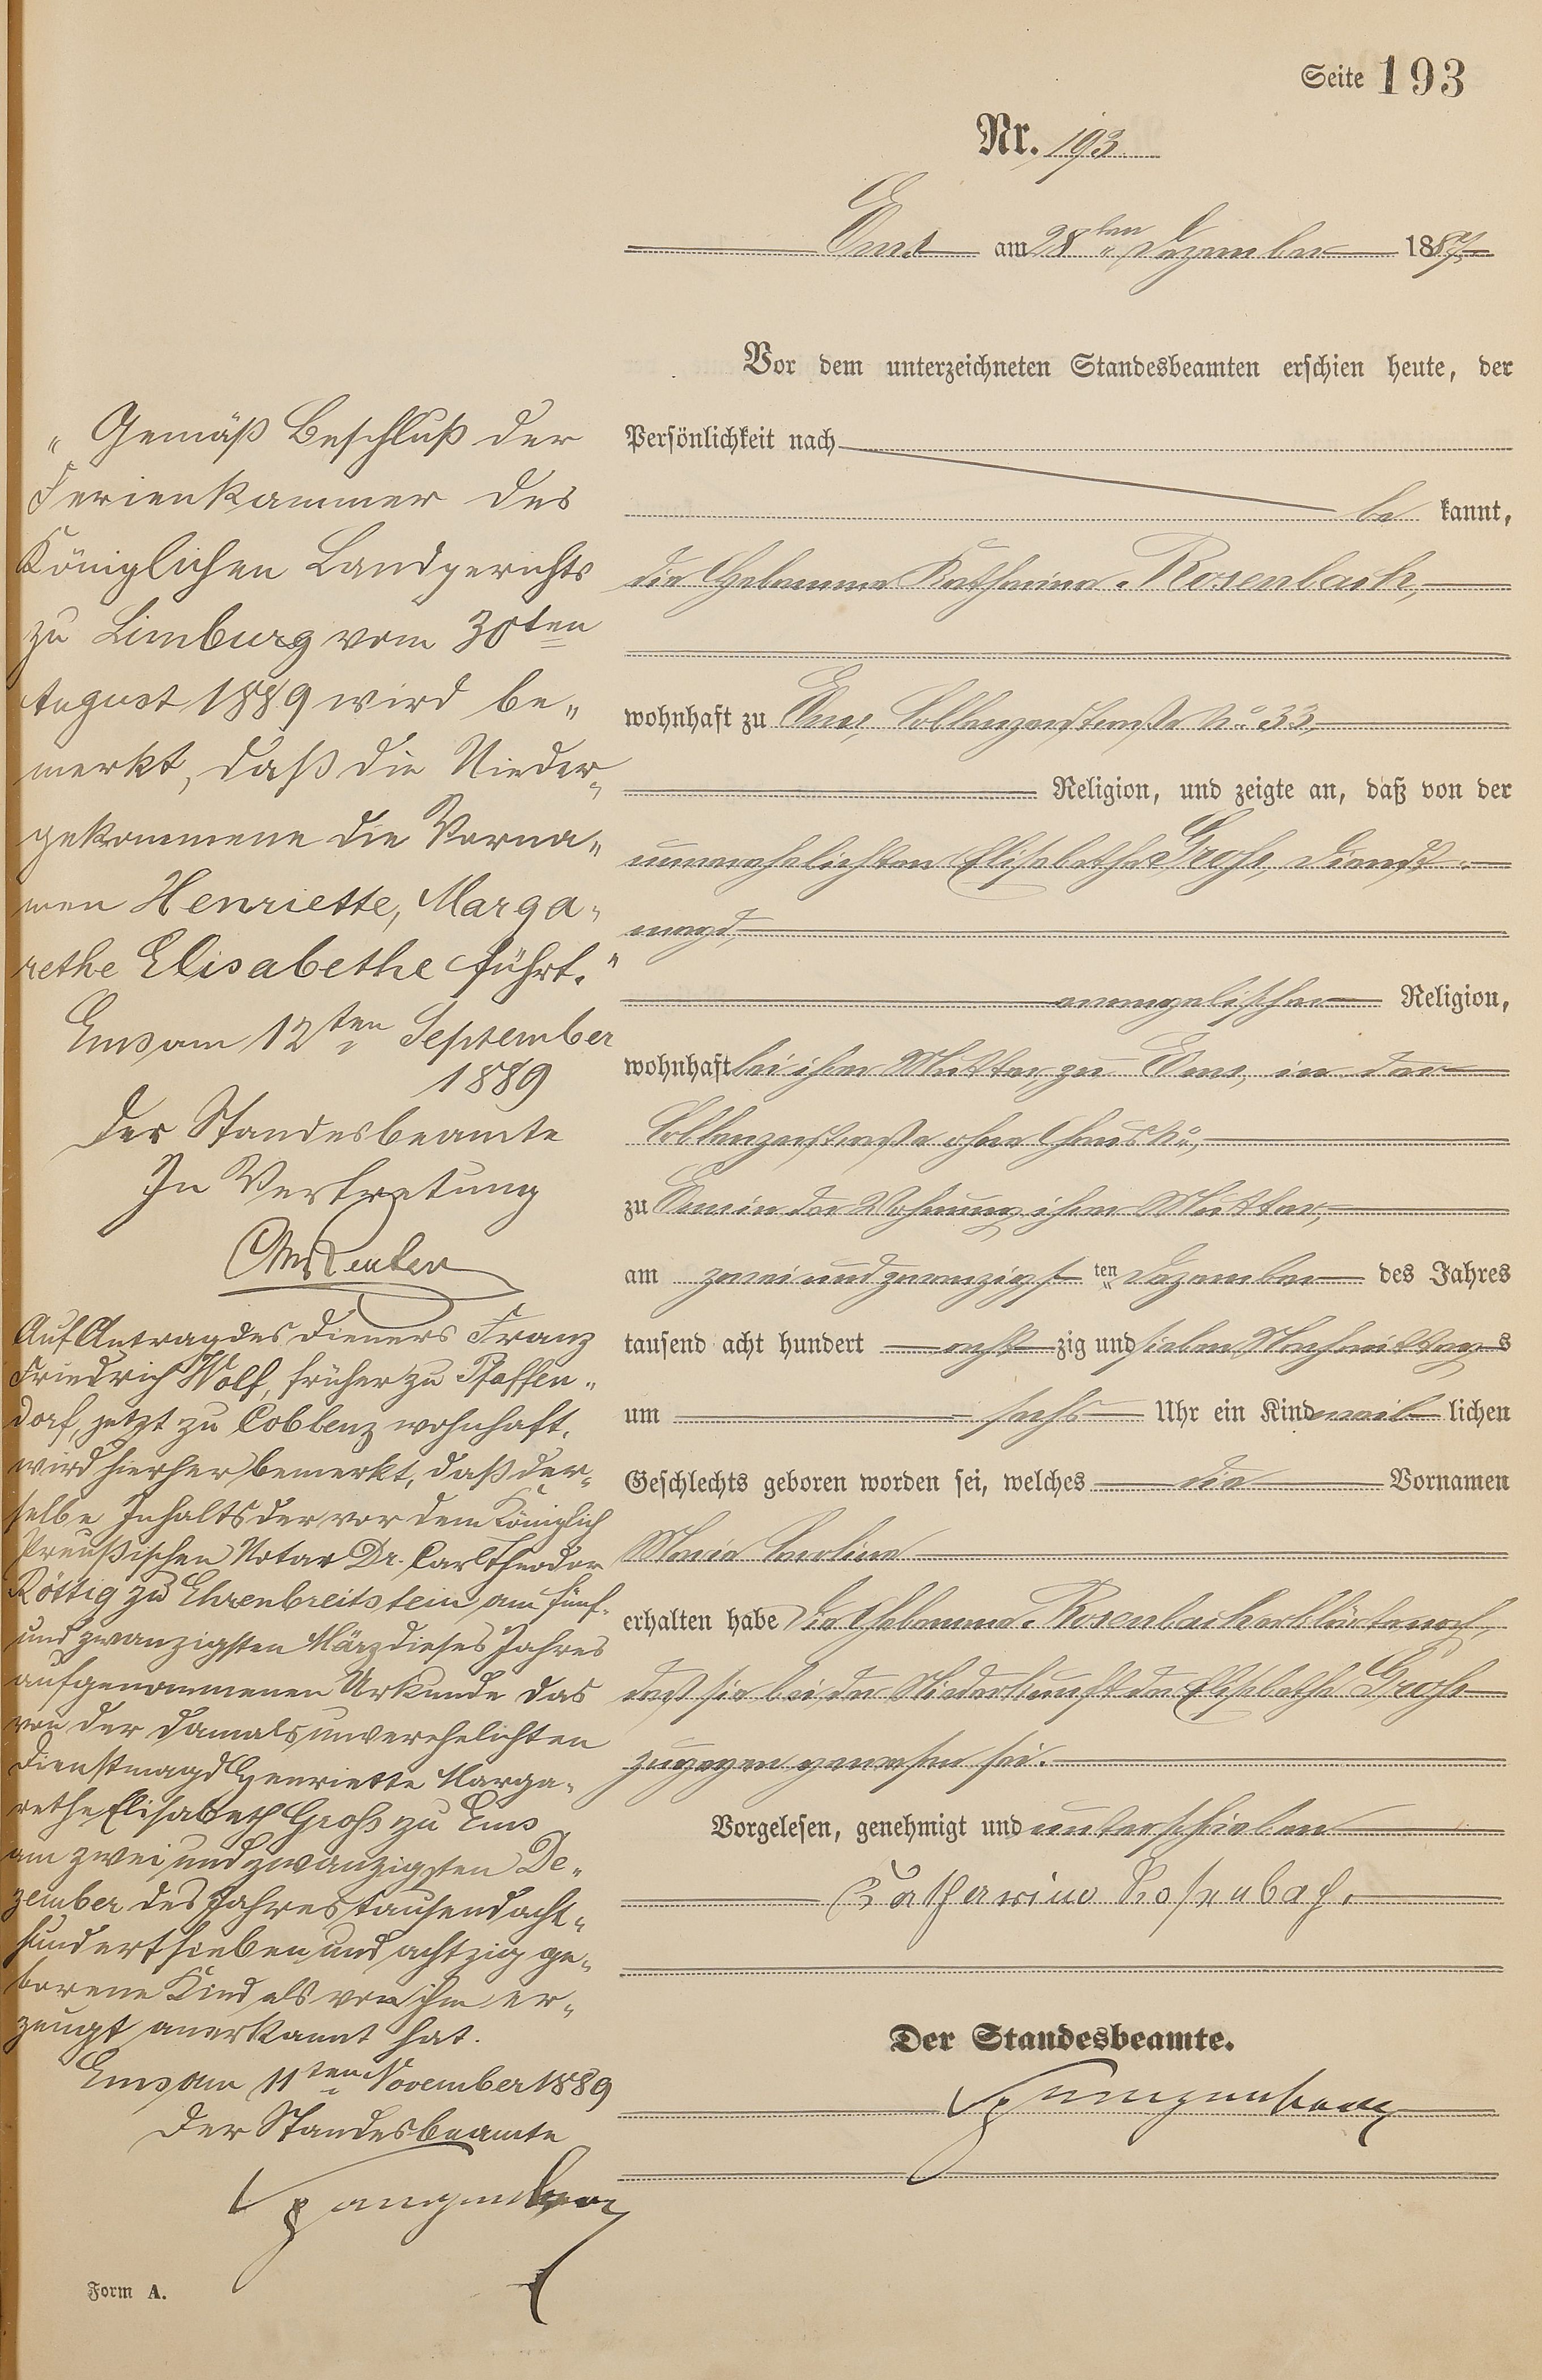 Seite 193
Nr. 193
Ems am 28ten Dezember 1887.
Vor dem unterzeichneten Standesbeamten erschien heute, der
Persönlichkeit nach
be kannt,
die Hebamme Katharina Rosenbach,
wohnhaft zu Ems, Coblenzerstraße No. 33,
Religion, und zeigte an, daß von der
unverehelichten Elisabethe Groß, Dienst-
magd,
evangelischer Religion,
wohnhaft bei ihrer Mutter, zu Ems, in der
Coblenzerstraße ohne Haus No,
zu Ems in der Wohnung ihrer Mutter,
am zweiundzwanzigs ten Dezember des Jahres
tausend acht hundert acht zig und sieben Nachmittags
um sechs Uhr ein Kind weib lichen
Geschlechts geboren worden sei, welches die Vornamen
Maria Carolina
erhalten habe Die Hebamme Rosenbach erklärte noch,
daß sie bei der Niederkunft der Elisabethe Groß
zugegen gewesen sei.
Vorgelesen, genehmigt und unterschrieben
Katharina Rosenbach.
Der Standesbeamte.
Spangenberg
„Gemäß Beschluß der
Ferienkammer des
Königlichen Landgerichts
zu Limburg vom 30ten
August 1889 wird be„
merkt, daß die Nieder„
gekommene die Vorna„
men Henriette, Marga„
rethe Elisabethe führt."
Ems am 12ten September
1889
Der Standesbeamte
In Vertretung
Auf Antrag des Dieners Franz
Friedrich Wolf, früher zu Pfaffen„
dorf, jetzt zu Coblenz wohnhaft,
wird hierher bemerkt, daß der„
selbe Inhalts der vor dem Königlich
Preußischen Notar Dr. Carl Theodor
Röttig zu Ehrenbreitstein am fünf„
und zwanzigsten März dieses Jahres
aufgenommenen Urkunde das
von der damals unverehelichten
Dienstmagd Henriette Marga„
rethe Elisabeth Groß zu Ems
am zwei und zwanzigsten De„
zember des Jahres tausend acht„
hundert sieben und achtzig ge„
borene Kind als von ihm er„
zeugt anerkannt hat.
Ems am 11ten November 1889
Der Standesbeamte
Spangenberg
Form A.